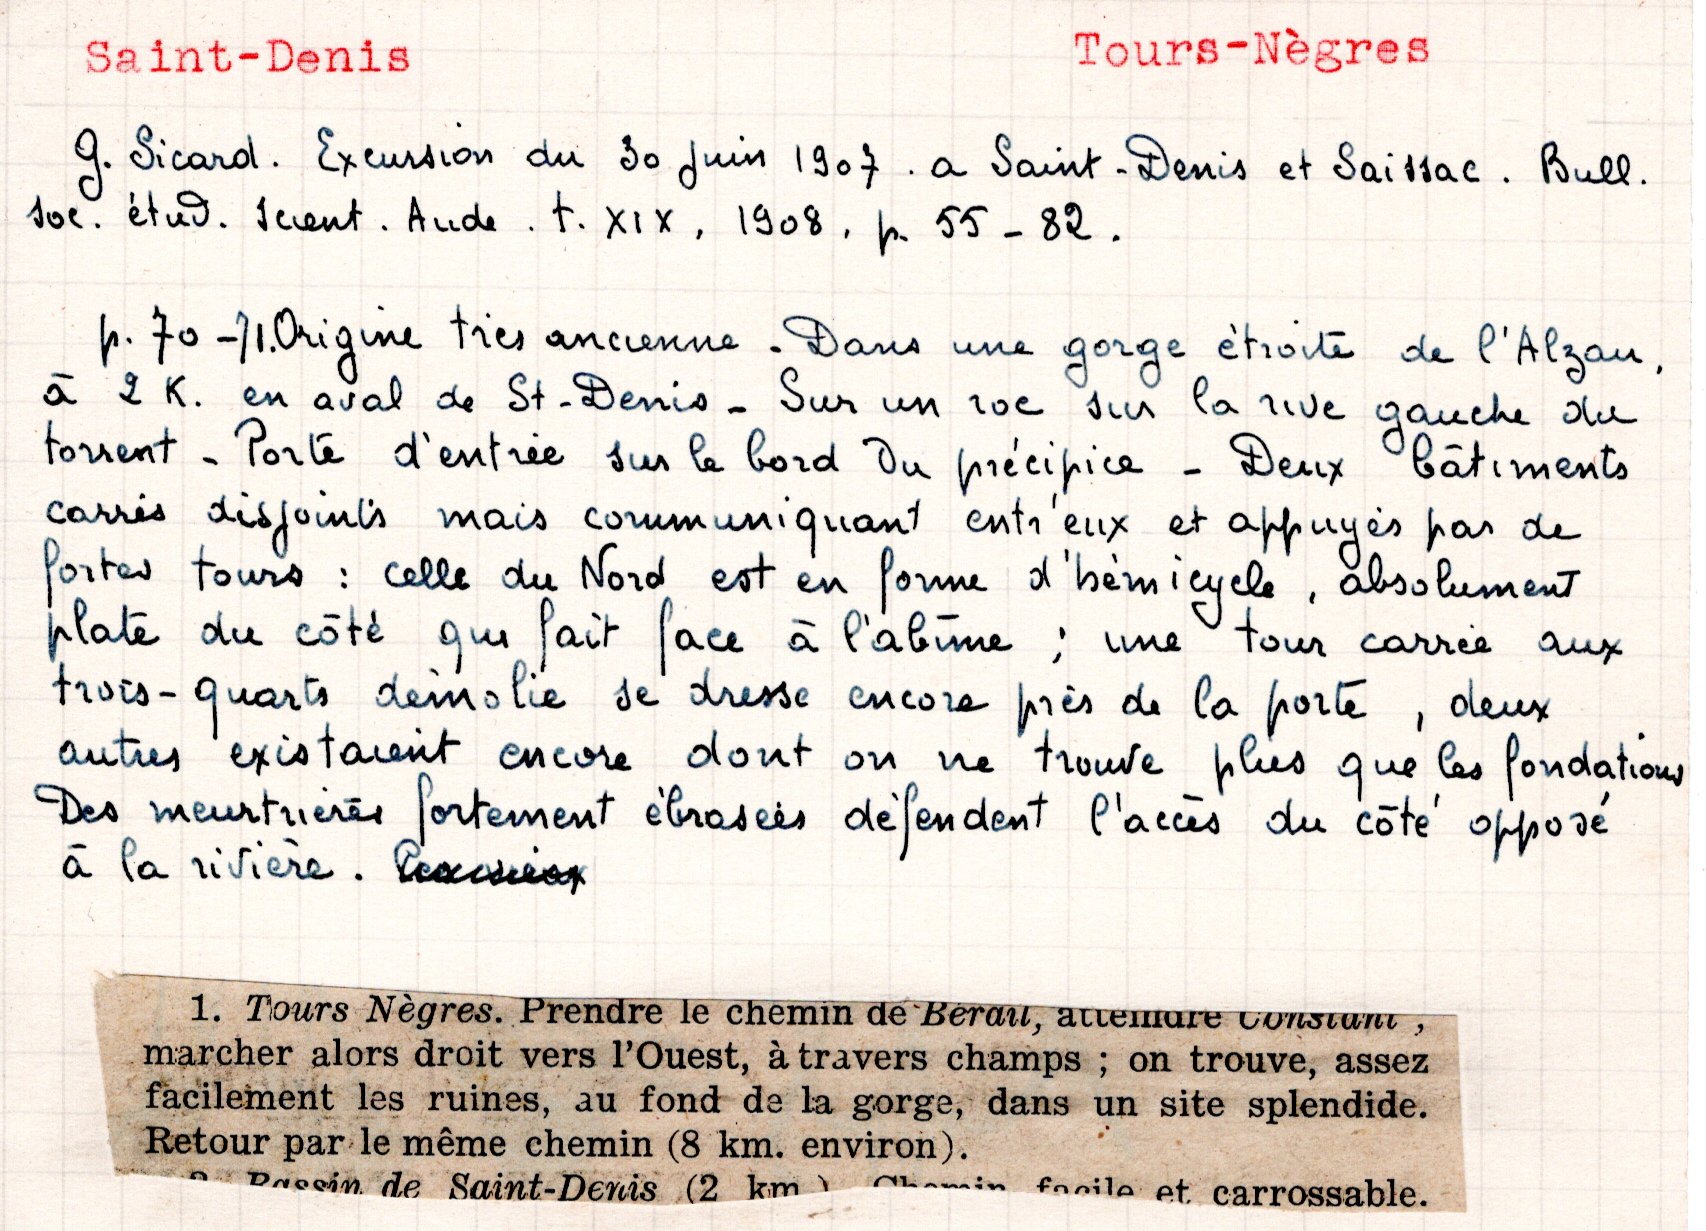 Saint-Denis Tours-Nègres
G. Sicard. Excursion du 30 juin 1907. a Saint-Denis et Saissac. Bull.
soc. étud. scient. Aude. t. XIX, 1908, p. 55-82.
p. 70-71. Origine très ancienne - Dans une gorge étroite de l'Alzau,
à 2 K. en aval de St-Denis - Sur un roc sur la rive gauche du
torrent - Porte d'entrée sur le bord du précipice - Deux bâtiments
carrés disjoints mais communiquant entr'eux et appuyés par de
fortes tours : celle du Nord est en forme d'hémicycle, absolument
plate du côté qui fait face à l'abîme ; une tour carrée aux
trois-quarts démolie se dresse encore près de la porte, deux
autres existaient encore dont on ne trouve plus que les fondations
Des meurtrières fortement ébrasées défendent l'accès du côté opposé
à la rivière.
1. Tours Nègres. Prendre le chemin de Bérail, atteindre Constant,
marcher alors droit vers l'Ouest, à travers champs ; on trouve, assez
facilement les ruines, au fond de la gorge, dans un site splendide.
Retour par le même chemin (8 km. environ).
2. Bassin de Saint-Denis (2 km.). Chemin facile et carrossable.